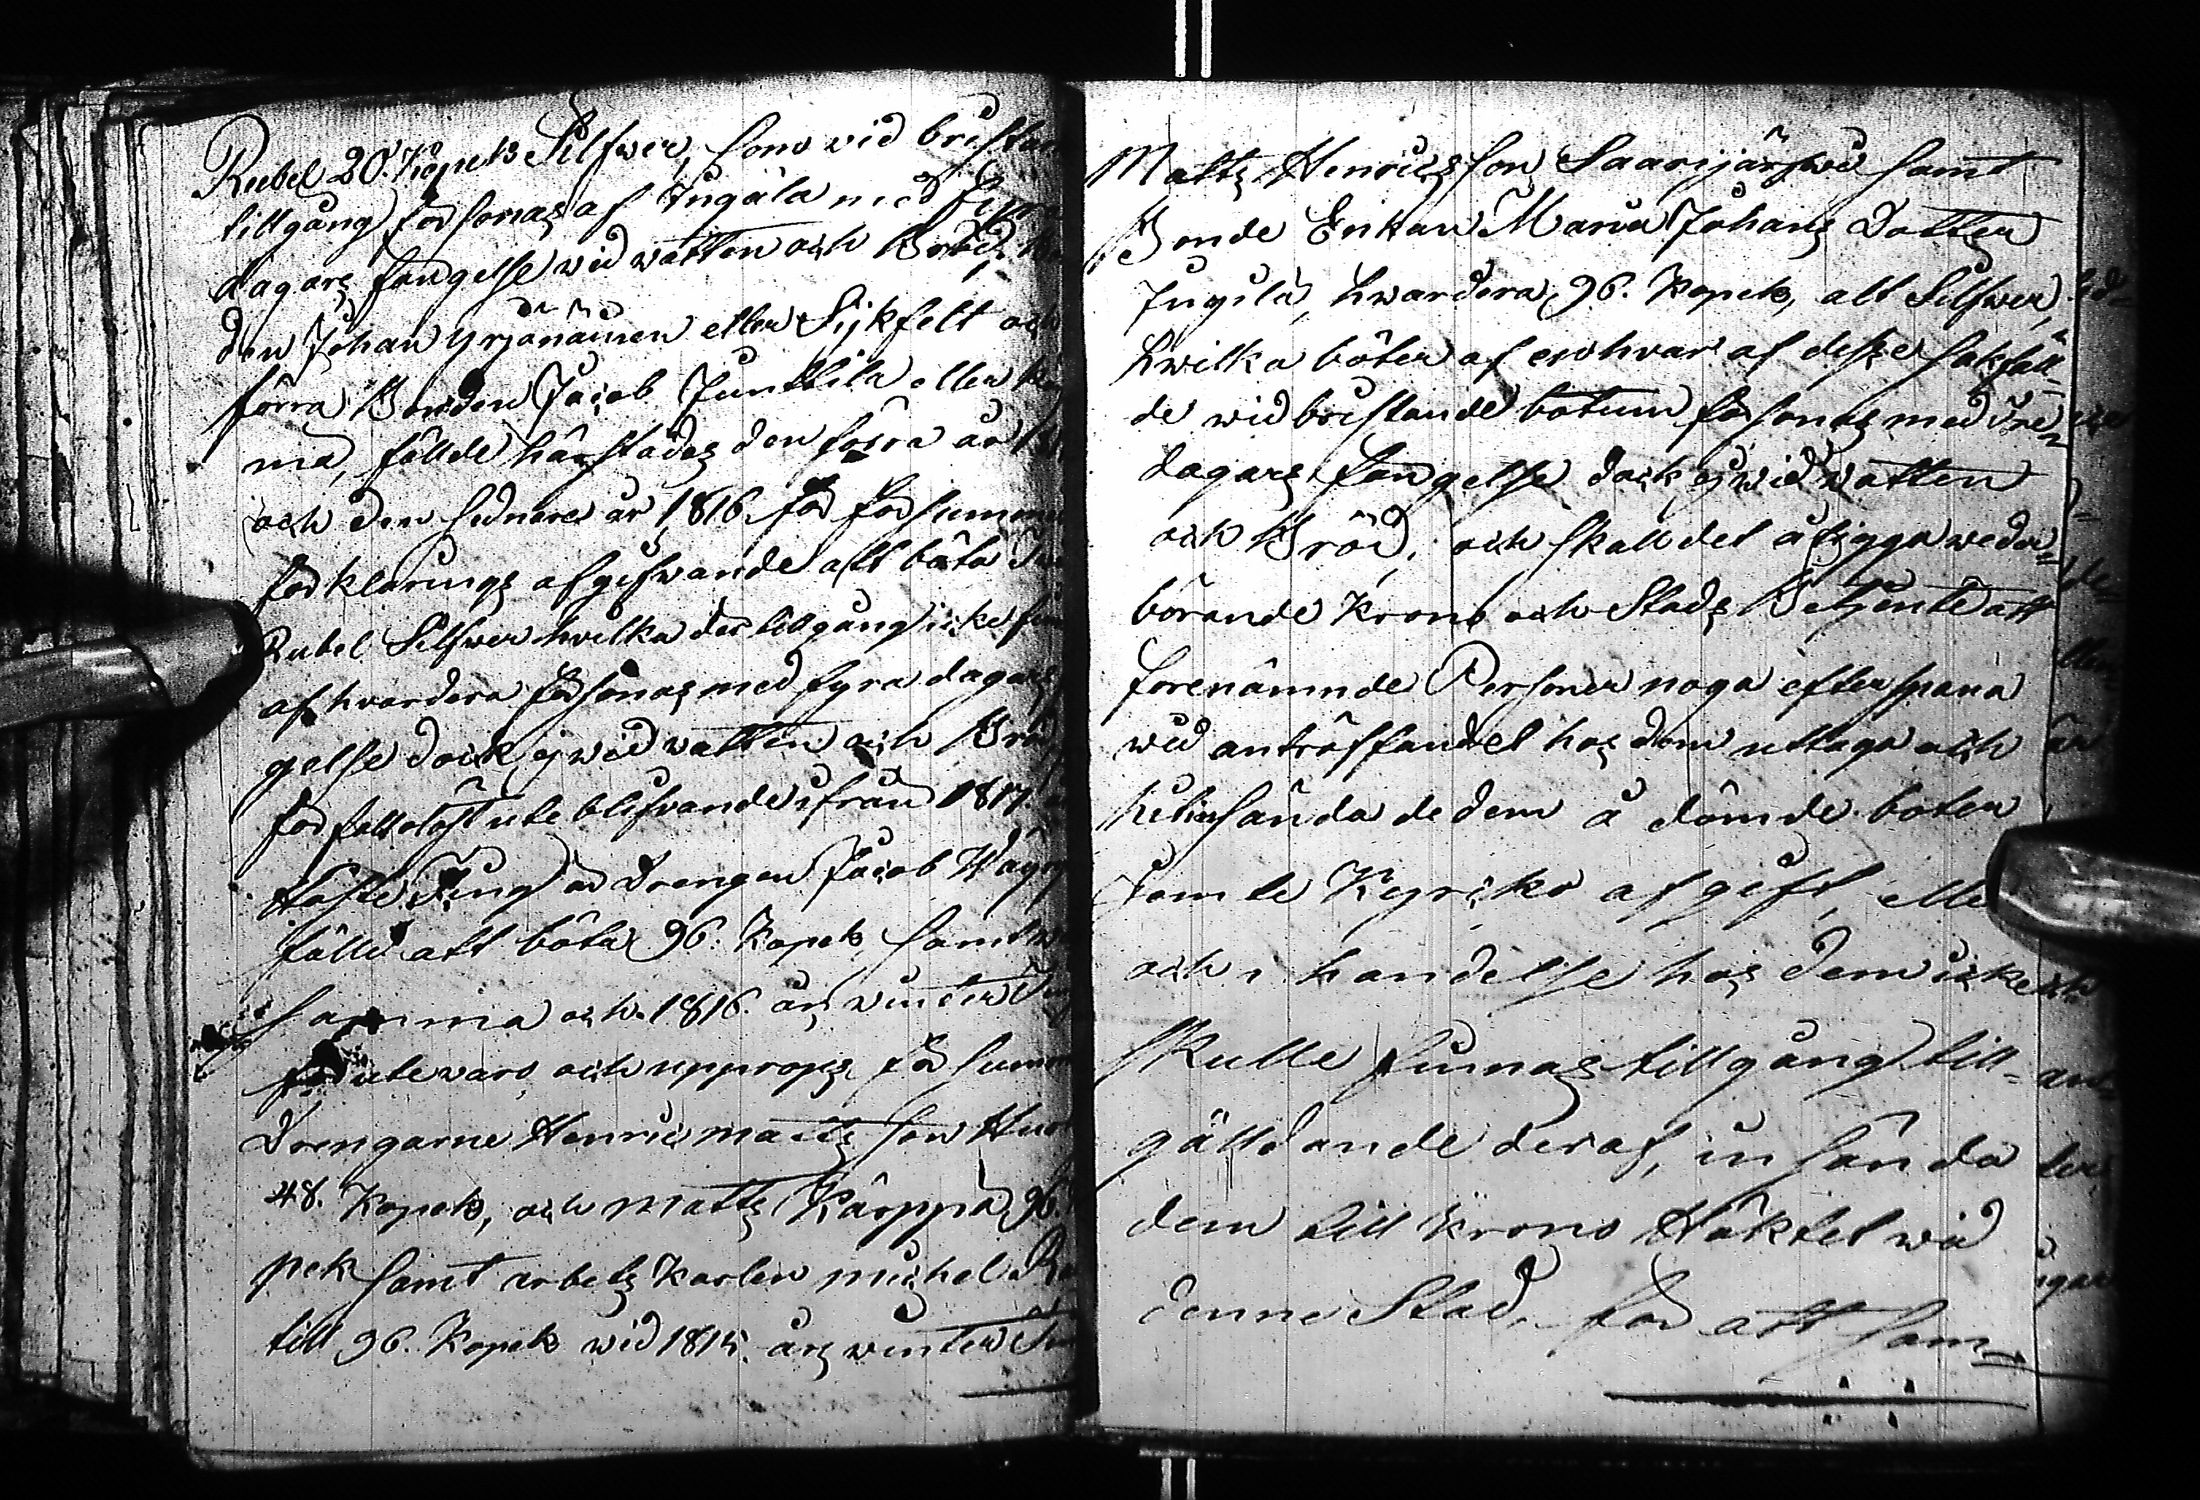 Rubel 20. Kopek Silfwer, som vid bristan
tillgång försonas af Jugila med
dagars fängelse wid watten och Bröd,
den Johan Yrjänäinen eller Sijkfelt och
förra Bonden Jacob Junttila eller
ma, fällde härstädes den förra år
och den sednare år 1816. för försumma
förklarings afgifwande att böta
Rubel Silfwer hwilka der tillgång icke
af hvardera försonas med fyra dagars
gelse dock ej wid watten och Bröd
förfallolöst uteblifvande ifrån 1817.
Höste Ting är Drengen Jacob
fälld att böta 96. Kopek, samt
samma och 1816. års winter
för utevaro och upprops försum
Drengarne Henric Matts son
48. Kopek, och Matts Kärppä 96.
pek samt arbets Karlen Michel
till 96. Kopek wid 1815. års winter
Matts Henrics son Saarijärfwi samt
Bonde Enkan Maria Johans Dotter
Jugila, hwardera 96. Kopek, alt Silfwer,
hwilka böter af enhvar af desse sakfäll-
de wid bristande botum försonas med Tre
dagars fängelse dock ej wid watten
och Bröd; och skall det åligga weder-
börande Krono och Stads Betjente att
förenämnde Personer noga efterspana
wid anträffandet hos dem uttaga och
hitinsända de dem å dömde böter
jemte Kyrcko afgift, elle
och i handelse hos dem icke
skulle finnas tillgång till-
gälldande deraf, insända
dem till Krono Häktet wid
denne Stad, för att som